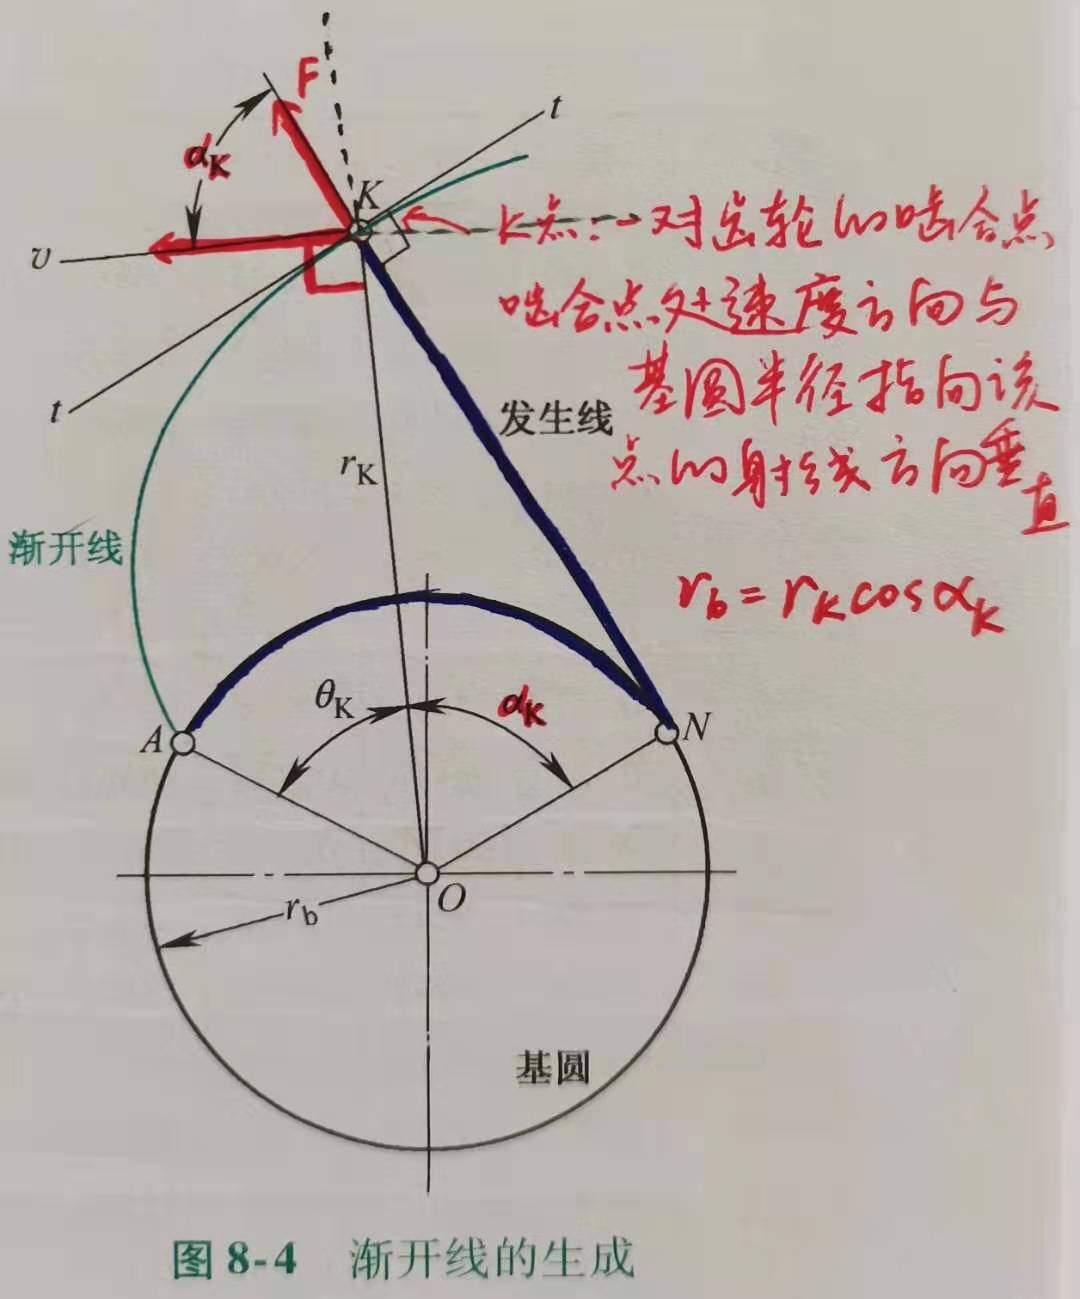 F
t
αK
K
K点:一对齿轮的啮合点
v
啮合点处速度方向与
基圆半径指向该
t
发生线
点的射线方向垂直
rK
渐开线
rb=rKcosαK
θK
αK
A
N
O
rb
基圆
图 8-4 渐开线的生成